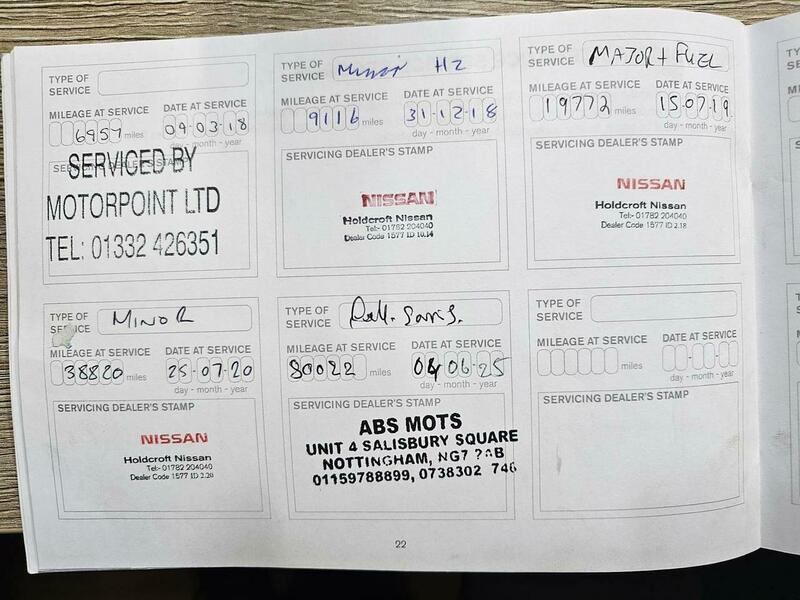 TYPE OF
SERVICE
MILEAGE AT SERVICE DATE AT SERVICE
6957 miles 09·03·18
day - month - year
SERVICING DEALER'S STAMP
SERVICED BY
MOTORPOINT LTD
TEL: 01332 426351
TYPE OF
SERVICE H2
MILEAGE AT SERVICE DATE AT SERVICE
9116 miles 31·12·18
day - month - year
SERVICING DEALER'S STAMP
NISSAN
Holdcroft Nissan
Tel:- 01782 204040
Dealer Code 1577 ID 10.14
TYPE OF
SERVICE MAJOR + FUEL
MILEAGE AT SERVICE DATE AT SERVICE
19772 miles 15·07·19
day - month - year
SERVICING DEALER'S STAMP
NISSAN
Holdcroft Nissan
Tel:- 01782 204040
Dealer Code 1577 ID 2.18
TYPE OF
SERVICE MINOR
MILEAGE AT SERVICE DATE AT SERVICE
38820 miles 25·07·20
day - month - year
SERVICING DEALER'S STAMP
NISSAN
Holdcroft Nissan
Tel:- 01782 204040
Dealer Code 1577 ID 2.20
TYPE OF
SERVICE
MILEAGE AT SERVICE DATE AT SERVICE
80022 miles 04·06·25
day - month - year
SERVICING DEALER'S STAMP
ABS MOTS
UNIT 4 SALISBURY SQUARE
NOTTINGHAM, NG7
01159788899, 0738302 746
TYPE OF
SERVICE
MILEAGE AT SERVICE DATE AT SERVICE
miles
day - month - year
SERVICING DEALER'S STAMP
22